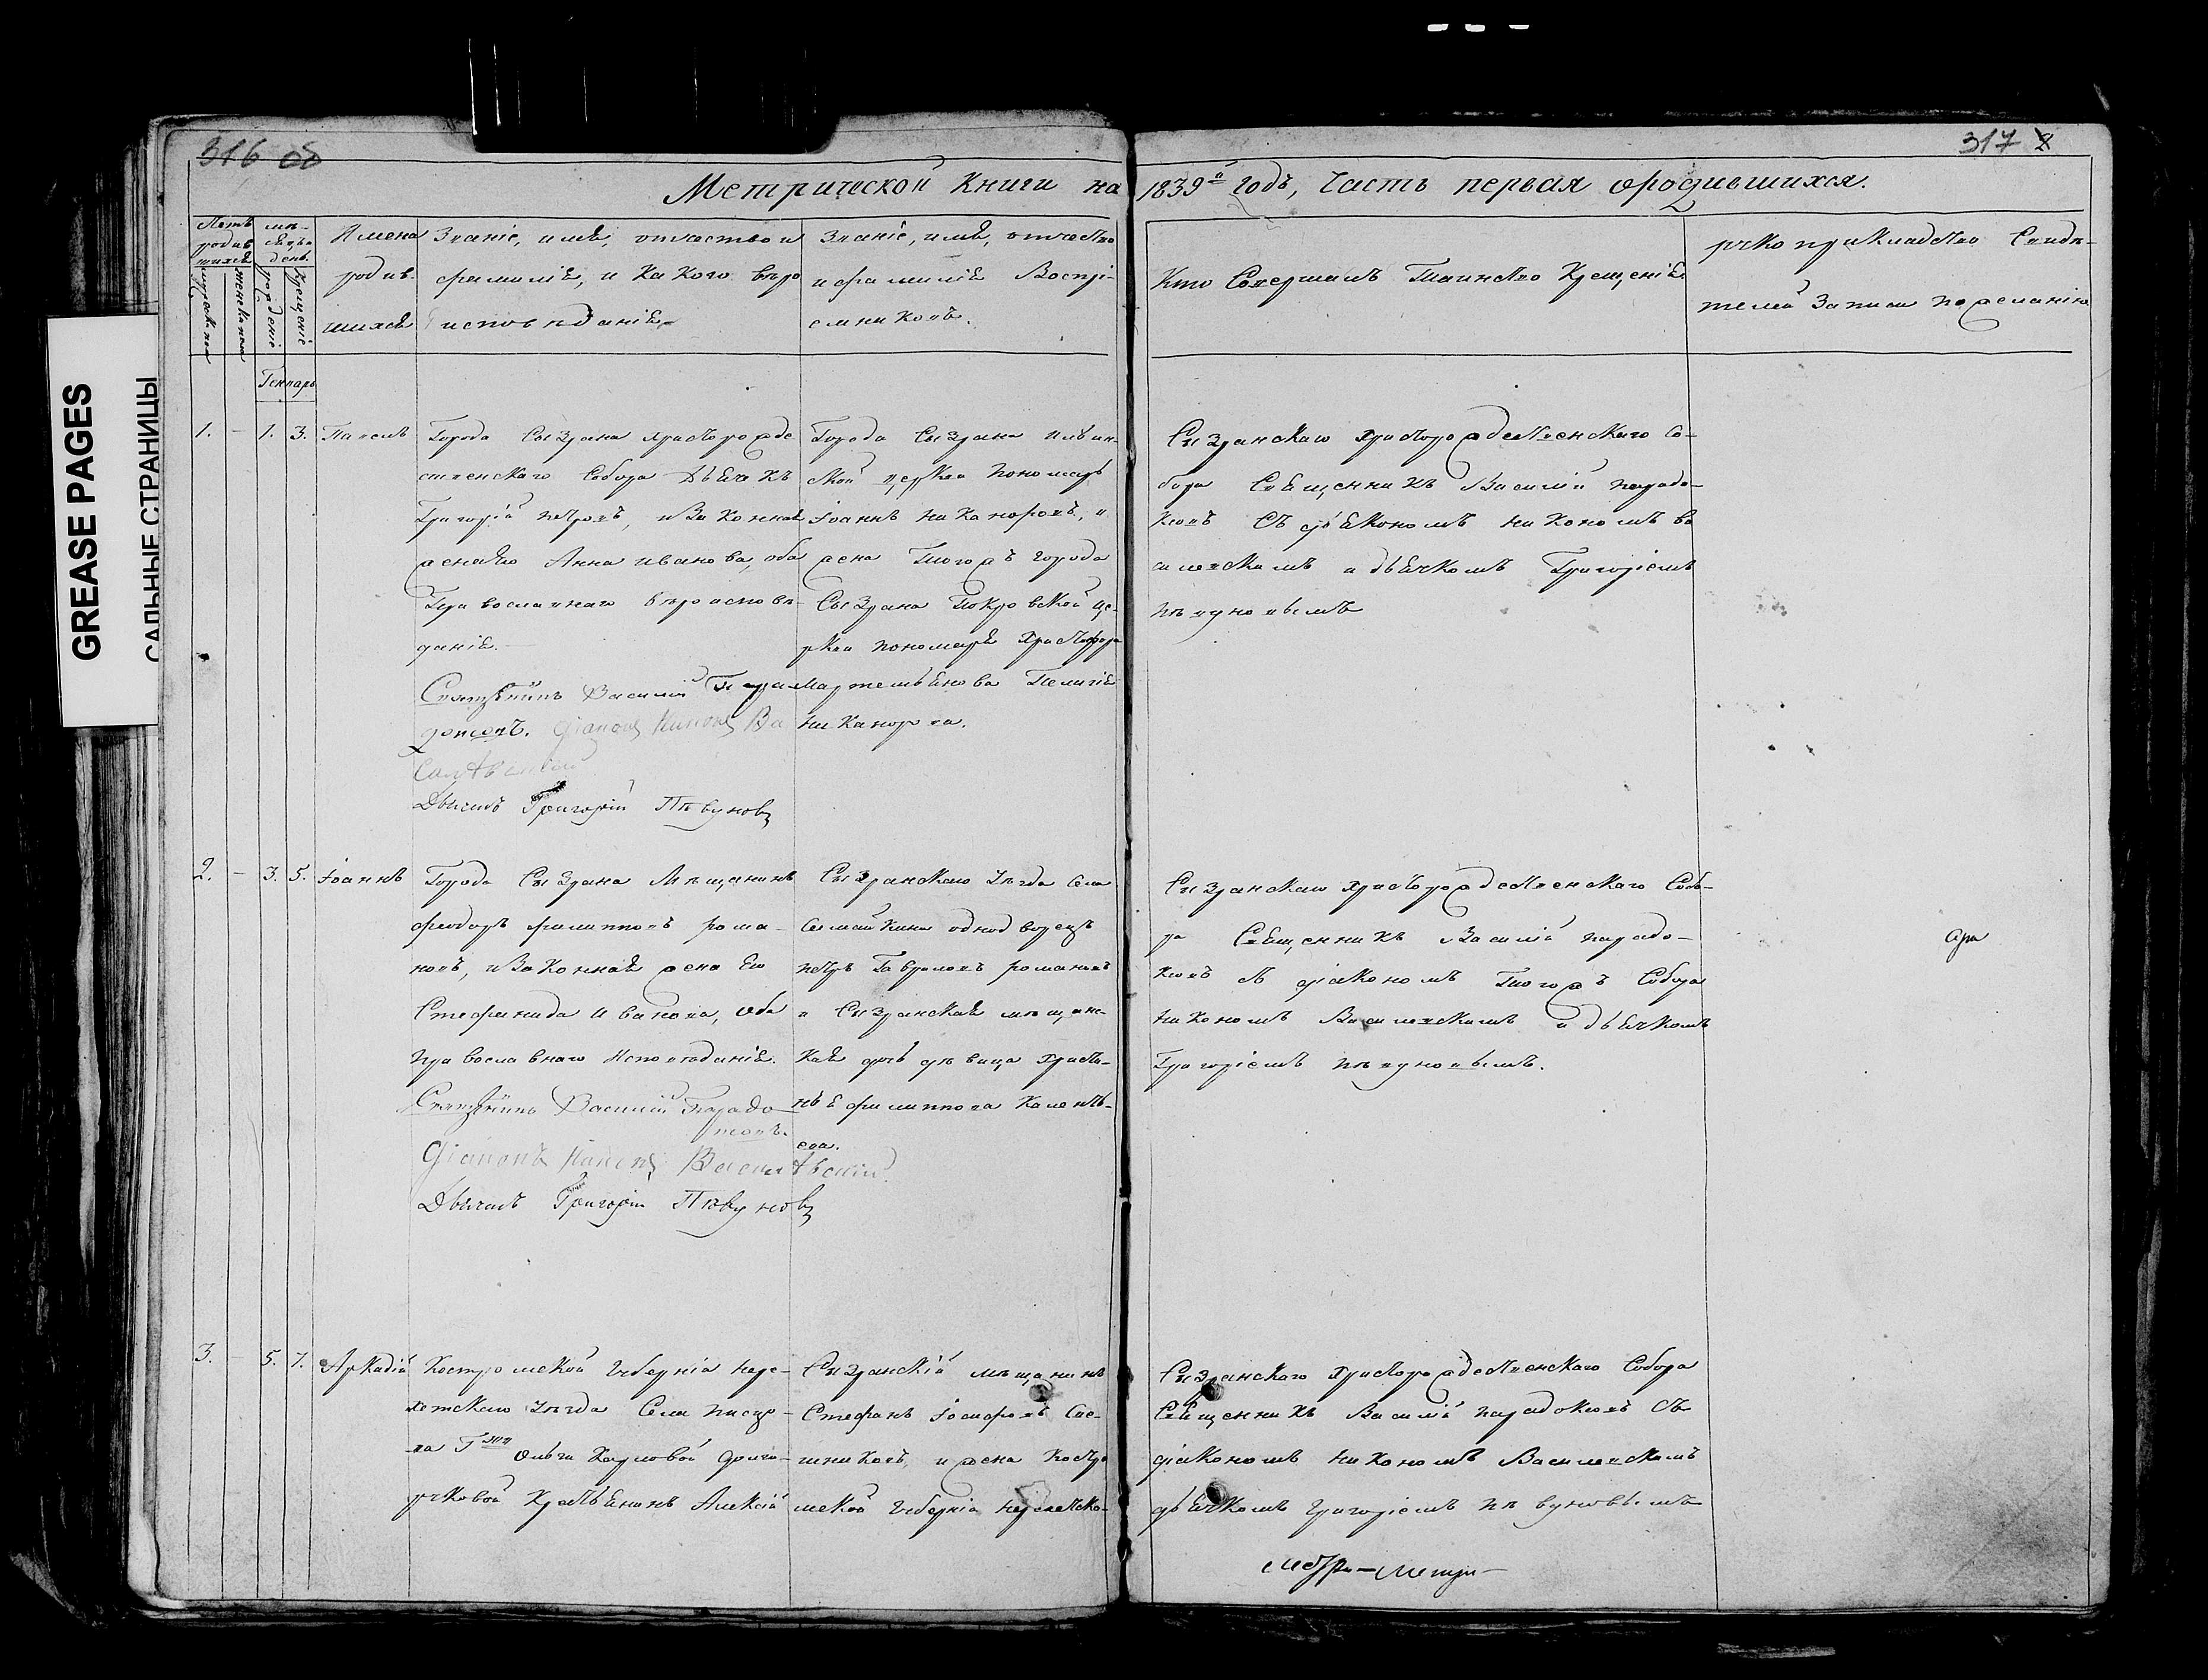 316 об
317
Метрической Книги на 1839й годъ, Часть первая о родившихся.
GREASE PAGES
САЛЬНЫЕ СТРАНИЦЫ
Счетъ родившихся
мужеска пола
женска пола
мѣсяцъ и день
рожденіе
крещеніе
Имена
родив-
шихся
Званіе, имя, отчество и
фамилія, и какого вѣро
исповѣданія
Званіе, имя, отчество
и фамилія Воспрі-
емниковъ.
Кто Совершалъ Таинство Крещенія
рукоприкладство Свидѣ-
телей записи по желанію
Генварь
1. - 1. 3. Павелъ
Города Сызрана христорожде
ственскаго Собора дьячекъ
Григорій пѣтровъ, и законная
жена его Анна иванова, оба
Православнаго вѣроисповѣ-
данія.
Священникъ Василій Парадо
ксовъ. Діаконъ Никонъ Ва
силевскій
Дьячекъ Григорій Пѣвуновъ
Города Сызрана ильин-
ской церкви пономарь
іоаннъ никаноровъ, и
жена тогожъ города
Сызрана Покровской це-
ркви пономаря христофора
мартемьянова Пелагія
никанорова.
Сызранскаго христорождественскаго Со-
бора Священникъ Василій парадо-
ксовъ Съ діякономъ никономъ ва
силевскимъ и дьячкомъ Григоріемъ
пѣвуновымъ
2. - 3. 5. іоаннъ
Города Сызрана Мѣщанинъ
феодоръ филипповъ рома-
новъ, и законная жена его
Стефанида иванова, оба
православнаго исповѣданія.
Священникъ Василій Парадо-
ксовъ.
Діаконъ Никонъ Василевскій
Дьячекъ Григорій Пѣвуновъ
Сызранскаго уѣзда Села
Семайкина однодворецъ
пѣтръ Гавриловъ романовъ
и Сызранская мѣщанс-
кая дочь дѣвица христи-
нья филиппова
ева.
Сызранскаго христорождественскаго Собо-
ра Священникъ Василій парадо-
ксовъ съ діякономъ тогожъ Собора
никономъ Василевскимъ и дьячкомъ
Григоріемъ пѣвуновымъ.
3. - 5. 7. Аркадій
Костромской губерніи нере-
хотскаго уѣзда Села писцо-
ва Г-жи Ольги Карловой долго-
руковой крестьянинъ Алексій
Сызранскій мѣщанинъ
Стефанъ іосифовъ Све-
шниковъ, и жена костро
мской губерніи нерехотско-
Сызранскаго христорождественскаго Собора
Священникъ Василій парадоксовъ Съ
діякономъ никономъ Василевскимъ
дьячкомъ григоріемъ пѣвуновымъ